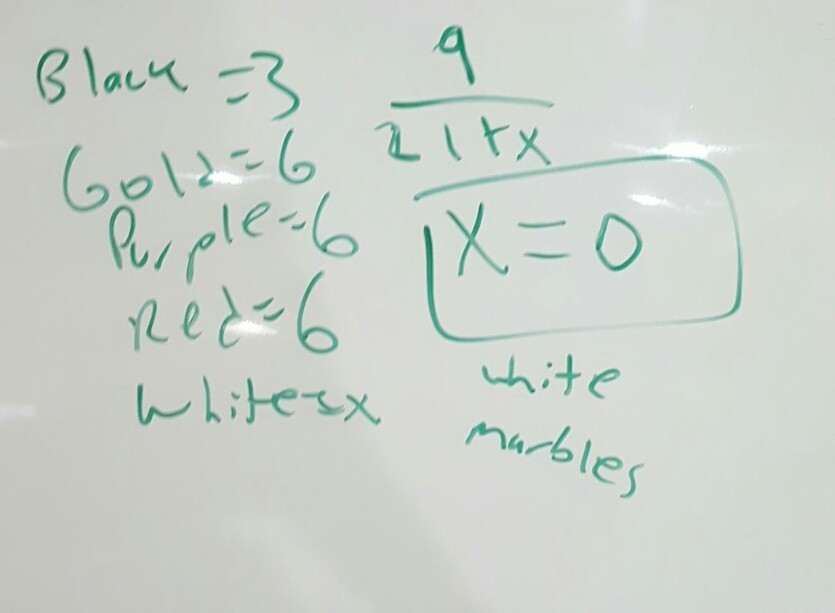 Black = 3
Gold = 6
Purple = 6
Red = 6
White = x
9
21+x
X = 0
white
marbles